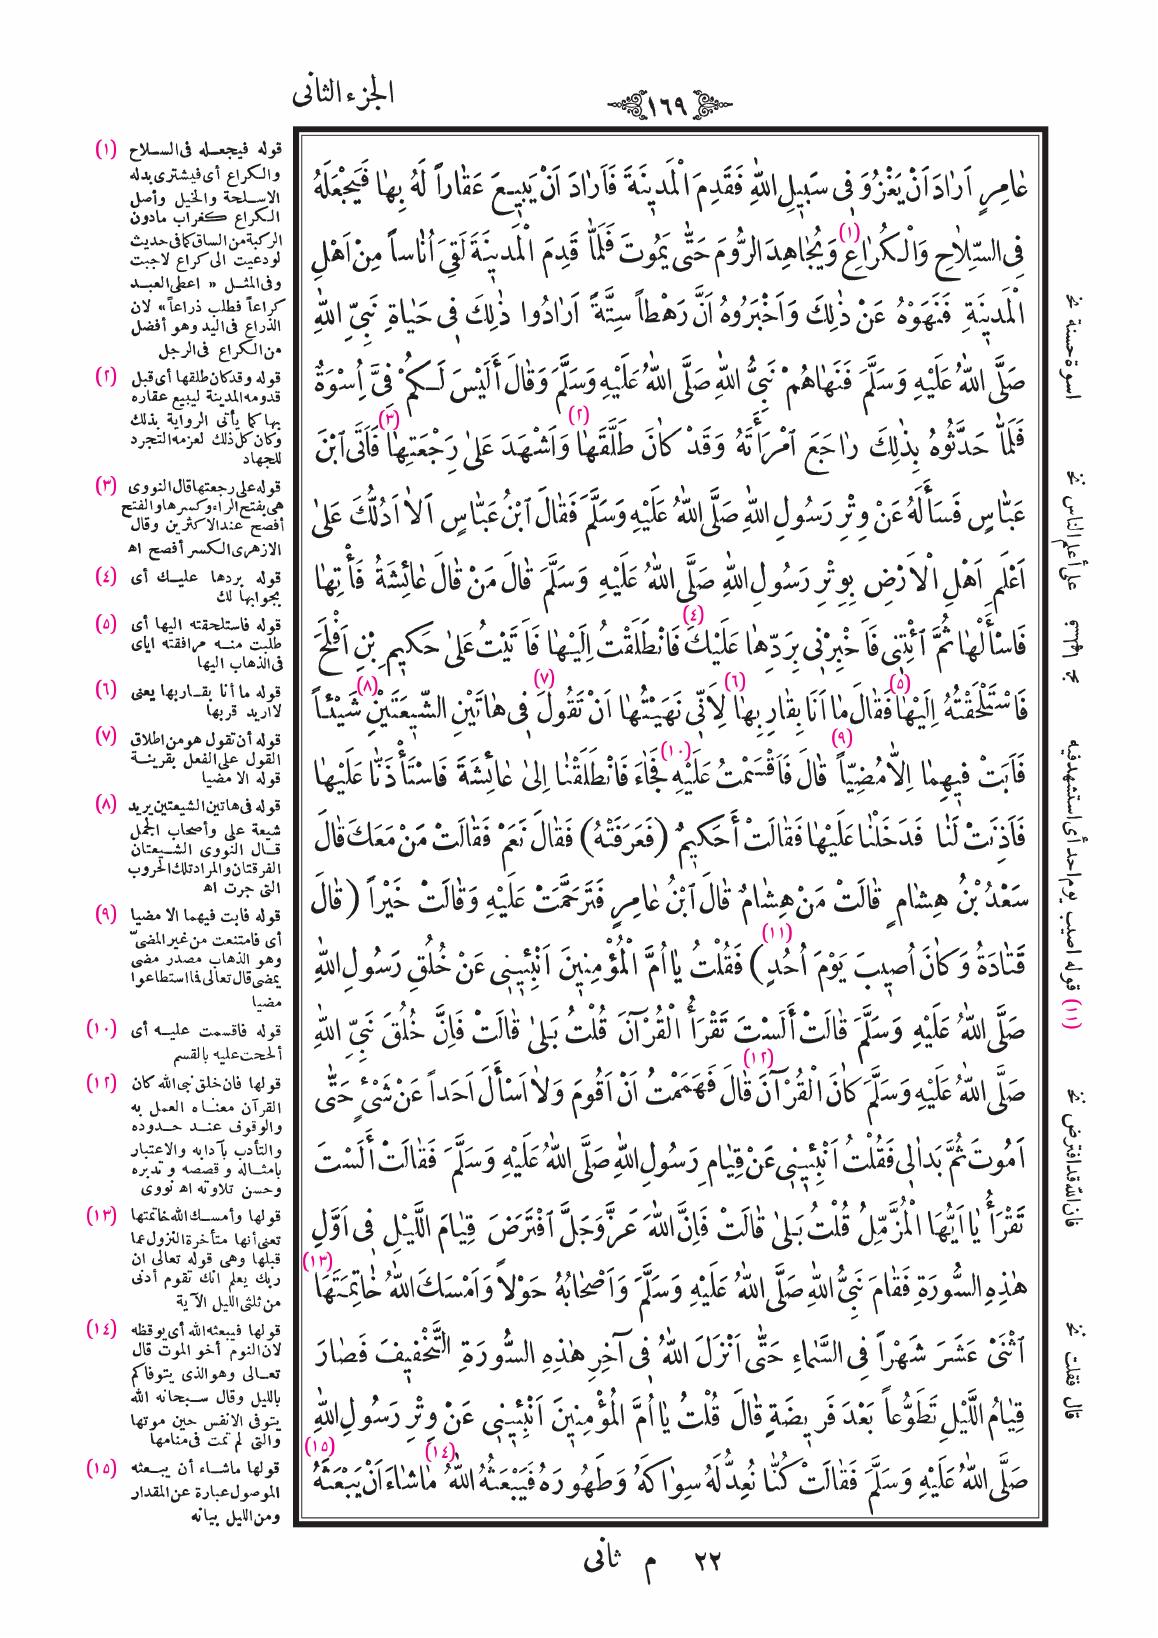 الجزء الثانى
١٦٩
عَامِرٍ اَرَادَ اَنْ يَغْزُوَ فِى سَبِيلِ اللهِ فَقَدِمَ الْمَدِينَةَ فَاَرَادَ اَنْ يَبِيعَ عَقَاراً لَهُ بِهَا فَيَجْعَلَهُ
فِى السِّلَاحِ وَالْكُرَاعِ (١) وَيُجَاهِدَ الرُّومَ حَتَّى يَمُوتَ فَلَمَّا قَدِمَ الْمَدِينَةَ لَقِىَ اُنَاساً مِنْ اَهْلِ
الْمَدِينَةِ فَنَهَوْهُ عَنْ ذٰلِكَ وَاَخْبَرُوهُ اَنَّ رَهْطاً سِتَّةً اَرَادُوا ذٰلِكَ فِى حَيَاةِ نَبِىِّ اللهِ
صَلَّى اللهُ عَلَيْهِ وَسَلَّمَ فَنَهَاهُمْ نَبِىُّ اللهِ صَلَّى اللهُ عَلَيْهِ وَسَلَّمَ وَقَالَ أَلَيْسَ لَكُمْ فِىَّ اِسْوَةٌ
فَلَمَّا حَدَّثُوهُ بِذٰلِكَ رَاجَعَ امْرَأَتَهُ وَقَدْ كَانَ طَلَّقَهَا (٢) وَاَشْهَدَ عَلَى رَجْعَتِهَا (٣) فَاَتَى ابْنَ
عَبَّاسٍ فَسَأَلَهُ عَنْ وِتْرِ رَسُولِ اللهِ صَلَّى اللهُ عَلَيْهِ وَسَلَّمَ فَقَالَ ابْنُ عَبَّاسٍ اَلَا اَدُلُّكَ عَلَى
اَعْلَمِ اَهْلِ الْاَرْضِ بِوِتْرِ رَسُولِ اللهِ صَلَّى اللهُ عَلَيْهِ وَسَلَّمَ قَالَ مَنْ قَالَ عَائِشَةُ فَأْتِهَا
فَاسْأَلْهَا ثُمَّ ائْتِنِى فَاَخْبِرْنِى بِرَدِّهَا عَلَيْكَ (٤) فَانْطَلَقْتُ اِلَيْهَا فَاَتَيْتُ عَلَى حَكِيمِ بْنِ اَفْلَحَ
فَاسْتَلْحَقْتُهُ اِلَيْهَا (٥) فَقَالَ مَا اَنَا بِقَارِبِهَا (٦) لِاَنِّى نَهَيْتُهَا اَنْ تَقُولَ (٧) فِى هَاتَيْنِ الشِّيعَتَيْنِ (٨) شَيْئاً
فَاَبَتْ فِيهِمَا اِلَّا مُضِيّاً (٩) قَالَ فَاَقْسَمْتُ عَلَيْهِ (١٠) فَجَاءَ فَانْطَلَقْنَا اِلَى عَائِشَةَ فَاسْتَأْذَنَّا عَلَيْهَا
فَاَذِنَتْ لَنَا فَدَخَلْنَا عَلَيْهَا فَقَالَتْ أَحَكِيمٌ (فَعَرَفَتْهُ) فَقَالَ نَعَمْ فَقَالَتْ مَنْ مَعَكَ قَالَ
سَعْدُ بْنُ هِشَامٍ قَالَتْ مَنْ هِشَامٌ قَالَ ابْنُ عَامِرٍ فَتَرَحَّمَتْ عَلَيْهِ وَقَالَتْ خَيْراً (قَالَ
قَتَادَةُ وَكَانَ اُصِيبَ يَوْمَ اُحُدٍ) (١١) فَقُلْتُ يَا اُمَّ الْمُؤْمِنِينَ اَنْبِئِينِى عَنْ خُلُقِ رَسُولِ اللهِ
صَلَّى اللهُ عَلَيْهِ وَسَلَّمَ قَالَتْ أَلَسْتَ تَقْرَأُ الْقُرْآنَ قُلْتُ بَلَى قَالَتْ فَاِنَّ خُلُقَ نَبِىِّ اللهِ
صَلَّى اللهُ عَلَيْهِ وَسَلَّمَ كَانَ الْقُرْآنَ (١٢) قَالَ فَهَمَمْتُ اَنْ اَقُومَ وَلَا اَسْأَلَ اَحَداً عَنْ شَىْءٍ حَتَّى
اَمُوتَ ثُمَّ بَدَا لِى فَقُلْتُ اَنْبِئِينِى عَنْ قِيَامِ رَسُولِ اللهِ صَلَّى اللهُ عَلَيْهِ وَسَلَّمَ فَقَالَتْ أَلَسْتَ
تَقْرَأُ يَا اَيُّهَا الْمُزَّمِّلُ قُلْتُ بَلَى قَالَتْ فَاِنَّ اللهَ عَزَّ وَجَلَّ افْتَرَضَ قِيَامَ اللَّيْلِ فِى اَوَّلِ
هٰذِهِ السُّورَةِ فَقَامَ نَبِىُّ اللهِ صَلَّى اللهُ عَلَيْهِ وَسَلَّمَ وَاَصْحَابُهُ حَوْلاً وَاَمْسَكَ اللهُ خَاتِمَتَهَا (١٣)
اثْنَىْ عَشَرَ شَهْراً فِى السَّمَاءِ حَتَّى اَنْزَلَ اللهُ فِى آخِرِ هٰذِهِ السُّورَةِ التَّخْفِيفَ فَصَارَ
قِيَامُ اللَّيْلِ تَطَوُّعاً بَعْدَ فَرِيضَةٍ قَالَ قُلْتُ يَا اُمَّ الْمُؤْمِنِينَ اَنْبِئِينِى عَنْ وِتْرِ رَسُولِ اللهِ
صَلَّى اللهُ عَلَيْهِ وَسَلَّمَ فَقَالَتْ كُنَّا نُعِدُّ لَهُ سِوَاكَهُ وَطَهُورَهُ فَيَبْعَثُهُ اللهُ (١٤) مَا شَاءَ اَنْ يَبْعَثَهُ (١٥)
(١) قوله فيجعله فى السلاح
والكراع أى فيشترى بدله
الاسلحة والخيل وأصل
الكراع كغراب مادون
الركبة من الساق كما فى حديث
لو دعيت الى كراع لاجبت
وفى المثل « اعطى العبد
كراعاً فطلب ذراعاً » لان
الذراع فى اليد وهو أفضل
من الكراع فى الرجل
(٢) قوله وقد كان طلقها أى قبل
قدومه المدينة ليبيع عقاره
بها كما يأتى الرواية بذلك
وكان كل ذلك لعزمه التجرد
للجهاد
(٣) قوله على رجعتها قال النووى
هى بفتح الراء وكسرها والفتح
أفصح عند الاكثرين وقال
الازهرى الكسر أفصح اه
(٤) قوله بردها عليك أى
بجوابها لك
(٥) قوله فاستلحقته اليها أى
طلبت منه مرافقته اياى
فى الذهاب اليها
(٦) قوله ما أنا بقاربها يعنى
لا اريد قربها
(٧) قوله أن تقول هو من اطلاق
القول على الفعل بقرينة
قوله الا مضيا
(٨) قوله فى هاتين الشيعتين يريد
شيعة على وأصحاب الجمل
قال النووى الشيعتان
الفرقتان والمراد تلك الحروب
التى جرت اه
(٩) قوله فابت فيهما الا مضيا
أى فامتنعت من غير المضىّ
وهو الذهاب مصدر مضى
يمضى قال تعالى فما استطاعوا
مضيا
(١٠) قوله فاقسمت عليه أى
ألححت عليه بالقسم
(١٢) قولها فان خلق نبى الله كان
القرآن معناه العمل به
والوقوف عند حدوده
والتأدب بآدابه والاعتبار
بامثاله و قصصه و تدبره
وحسن تلاوته اه نووى
(١٣) قولها وأمسك الله خاتمتها
تعنى أنها متأخرة النزول عما
قبلها وهى قوله تعالى ان
ربك يعلم انك تقوم أدنى
من ثلثى الليل الآية
(١٤) قولها فيبعثه الله أى يوقظه
لان النوم أخو الموت قال
تعالى وهو الذى يتوفاكم
بالليل وقال سبحانه الله
يتوفى الانفس حين موتها
والتى لم تمت فى منامها
(١٥) قولها ماشاء أن يبعثه
الموصول عبارة عن المقدار
ومن الليل بيانه
اسوة حسنة نخ
على أعلم الناس نخ
(١١) قوله اصيب يوم احد أى استشهد فيه
فان الله قد افترض نخ
قال فقلت نخ
٢٢ م ثانى